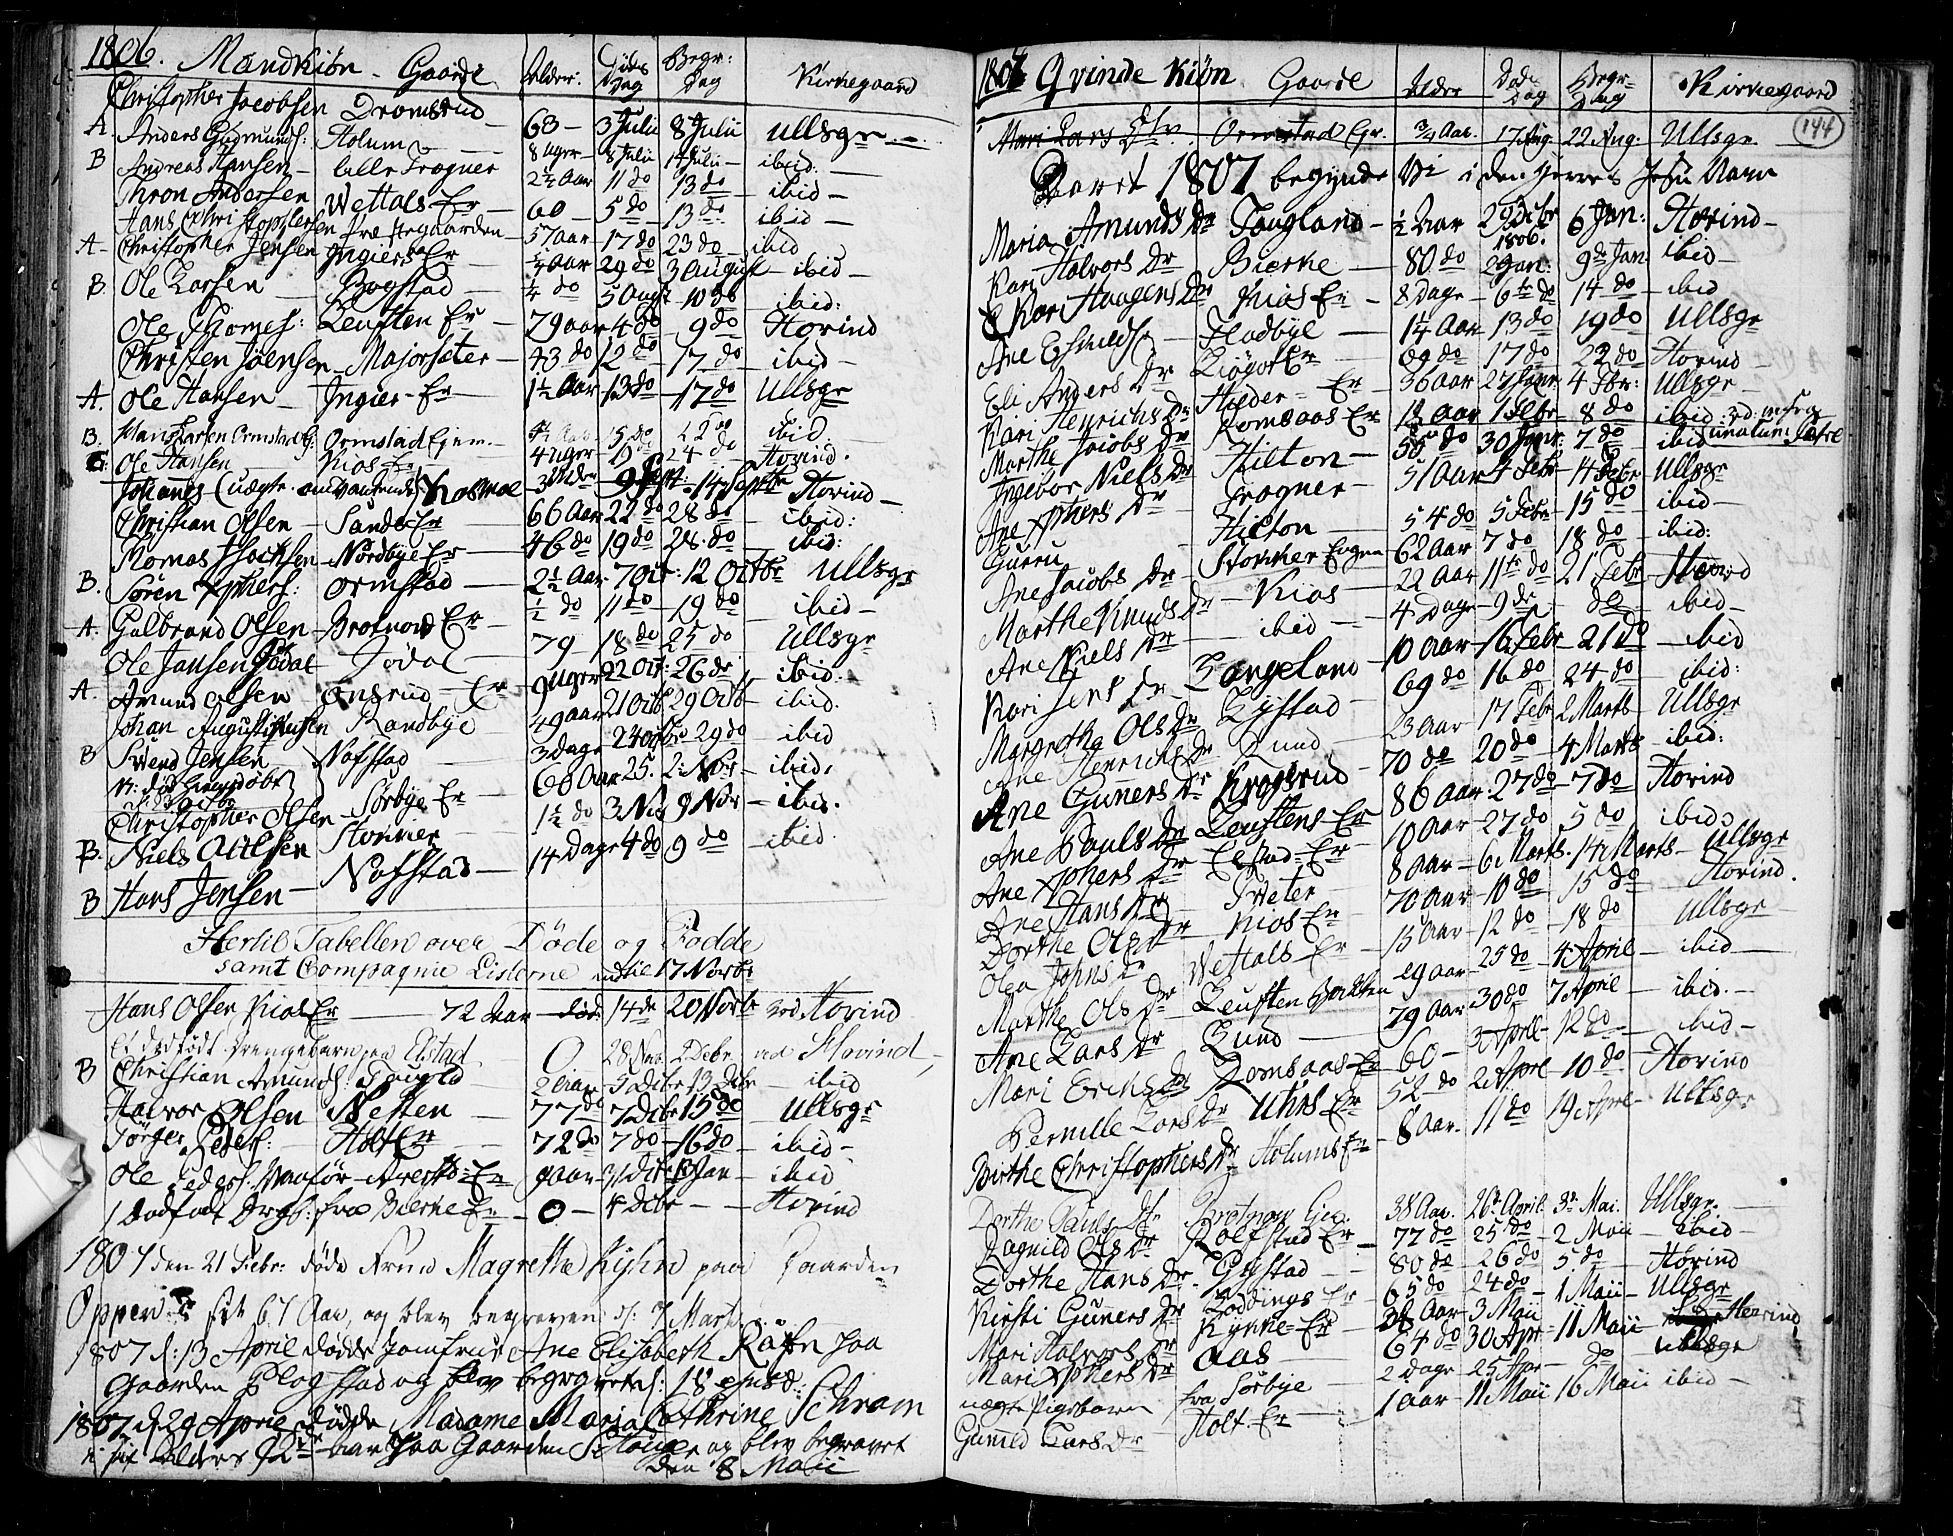 1806. Mandkiøn - Gaarde Alder: Døds Dag Begr: Dag Kirkegaard
Christopher Jacobsen Dromsrud 63 - 3 Julii 8 Julii Ullsgr
A. Anders Gudmunds: Holum 8 uger - 8 Julii 14 Julii - ibid:
B Andreas Hansen - lille Frogner 2½ Aar 11 do 13 do - ibid -
Thron Andersen Wettals Er 60 - 5 do 13 do ibid -
Hans Christophersen Præstegaarden 57 aar - 17 do 23 do - ibid
A - Christopher Jensen Ingiers Er aar 29 do 3 August - ibid -
B. Ole Larsen Bogstad ¼ do 5 Augt 10 do ibid:
Ole Thomes: Leusten Er 79 aar 4 do 9 do Hovind
Christen Joensen - Majorsæter 43 do 12 do 17 do - ibid -
A. Ole Hansen - Ingier - Er 1½ Aar 13 do 17 do Ullsgr
B. Hans Larsen Ormstad Ejem 15 do 22 do ibid
Ole Hansen Kios Er 4 uger 19 do 24 do Hovind.
Johannes (uægte - 3 9 Sept. 14 Septbr Hovind -
Christian Olsen - Sandes Er 66 Aar 22 do 28 do - ibid:
Thomas Nordbye Er 46 do 19 do 28 do - ibid:
B. Søren Xphers: Ormstad 2½ Aar 7 Oct: 12 Octbr Ullsgr
A. Gulbrand Olsen - Brotnord Er ½ do 11 do 19 do ibid -
Ole Jansen Jødal - Jødal 79 - 18 do 25 do Ullsgr
A. Amund Olsen Onsrud - Er 9 uger 22 Oct: 26 do ibid:
Johan Randbye 49 aar 21 Octb 29 Octb - ibid.
B Svend Jensen Nafstad 3 dage 24 Octbr 29 do ibid
60 Aar 25. 2 Nov - ibid,
Christopher Olsen - Sørbye Er 1½ do 3 Nov 9 Nov - ibid.
B. Niels Storkier 14 Dage 4 do 9 do - ibid
B Hans Jensen - Nafstad
Hertil Tabellen over Døde og Fødde
samt Compagnie Listerne indtil 17 Novbr
Hans Olsen Kios Er 72 Aar død: 14 do 20 Novbr ved Hovind
Et dødfødt Drengebarn paa Elstad 0 28 Nov 2 Debr ved Hovind
B Christian Amunds: Taugld 2 aar 5 Decbr 13 Debr - ibid
Halvor Olsen Nesten 77 do 7 Debr 15 do - Ullsgr
Torger Peders: Holt Er 72 do 7 do 16 do - ibid -
Ole Peders: Er 9 aar 31 Debr Jan - ibid
1 dødfødt Drgb: fra Bierke Er - 0 - 4 Debr - - Hovind
1807 den 21 Febr: døde Frue Magrethe Kyhn paa Gaarden
Oppen i sit 67 Aar, og blev begraven d: 7 Marts
1807 d: 13 April dødde Jomfrue Ane Elisabeth Rafn paa
Gaarden Flogstad og blev begravet d: 18 ejusd:
1807 d. 29 April dødde Madame Maria Cathrine Schram
i sit Alders 92de aar paa Gaarden og blev begravet
den 8 Maii
1806 Qvinde Kiøn Gaarde Aldre Døds Dag Begr- Dag Kirkegaard
144
Mari Lars Dtr. Ormstad Er. ¾ Aar. 17 Aug. 22 Aug. Ullsgr.
Aaret 1807 begynde Vi i den Herres Jesu Navn
Maria Amunds Dr Taugland - ½ Aar 29 Debr 1806. 6 Jan: Hovind -
Kari Halvors Dr Bierke 80 do 2 Jan: 9de Jan ibid -
Kari Haagens Dr Kios Er - 8 Dage - 6te do 14 do - ibid
Ane Fladbye 1¼ Aar 13 do 19 do Ullsgr
Eli Anders Dr 69 do 17 do 22 do Hovind -
Kari Henrichs Dr Er - 36 Aar 27 Janr 4 Fbr: Ullsgr -
Marthe Jacobs Dr Romsaas Er Aar 1 Febr 8 do ibid
Ingebor Niels Dr Hilton - 58 do 30 Janr 7 do ibid
Ane Xphers Dr Frogner - 51 Aar 4 Febr Ullsgr
Gurru Hilton 54 do 5 Febr 15 do - ibid -
Ane Jacobs Dr Storkier Engen 62 Aar 7 do 18 do - ibid:
Marthe Knuds Dr Kios 22 Aar 11te do 21 Febr Hovind
Ane Niels Dr ibid 4 Dage 9 do do - ibid -
Kari Jens Dr Langeland - 10 Aar - 16 Febr - 21 do - ibid
Margrethe Ols Dr Lystad - 69 do 16 do 24 do - ibid:
Ane Henrichs Dr Lund 23 Aar 17 Febr 2 Marts - Ullsgr
Ane Guners Dr Krogsrud - 70 do 20 do - 4 Marts ibid:
Ane Pauls Dr Leustens Er 86 Aar 27 do 7 do Hovind
Ane Xphers Dr Elstad - Er 10 Aar - 27 do 5 do ibid
Ane Hans Dr Sveter 8 Aar - 6 Marts. 14 Marts - Ullsgr
Dorthe Ols Dr Kios Er 70 Aar - 10 do 15 do Hovind.
Olea Johns Dr Wettals Er 15 Aar - 12 do - 18 do Ullsgr
Marthe Ols Dr Leusten Bakken 29 aar - 25 do 4 April - ibid -
Ane Lars Dr Lund - 79 aar 30 do 7 April - ibid. -
Mari Erichs Dr Romsaas Er 60 - 3 April - 12 do - ibid -
Pernille Lars Dr Uhrs Er 52 do 2 April 10 do Hovind
Birthe Christophers Dr Holums Er - 8 Aar. 11 do 19 April - Ullsgr
Dorthe Pauls Dtr Brotnow Eje 38 Aar. 26de April. 3de Mai. Ullsgr.
Ragnild Ols Dr Rolfstad Er 77 do 25 do 2 Maii - ibid -
Dorthe Hans Dr - Lystad - 80 do 26 do 5 do - Hovind
Kirsti Guners Dr Loddings Er 65 do 24 do 1 Maii - Ullsgr
Mari Halvors Dr Kyrke - Er 38 Aar 3 Maii 11 Maii Hovind
Mari Xphers Dr Aas 64 do 30 Apr do Ullsgr
uægte Pigebarn fra Sørbye 2 dage 25 Apr
Gunild Lars Dr Holt - Er 1 aar - 11 Maii 16 Maii ibid -